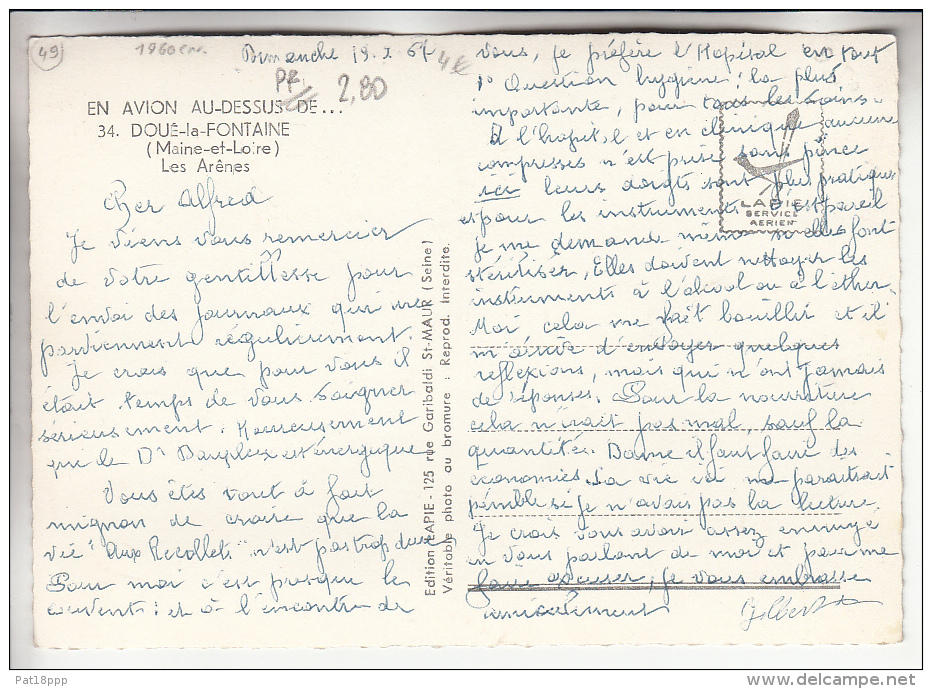 49
1960 env.
Dimanche 19. I. 64
4€
PF
2,80
EN AVION AU-DESSUS DE...
34. DOUÉ-la-FONTAINE
(Maine-et-Loire)
Les Arênes
Cher Alfred
Je viens vous remercier
de votre gentillesse pour
l'envoi des journaux qui me
parviennent régulièrement.
Je crois que pour vous il
était temps de vous soigner
sérieusement. Heureusement
que le Dr est énergique
Vous êtes tout à fait
mignon de croire que la
vie "Aux Récollets" n'est pas trop dure
Pour moi c'est presque le
couvent; et à l'encontre de
Edition LAPIE - 125 rue Garibaldi St-MAUR (Seine)
Véritable photo au bromure : Reprod. Interdite.
vous, je préfère l'Hôpital en tout
1° Question hygiène: la plus
importante, pour tous les soins.
A l'hopital et en clinique aucune
compresses n'est prise sans pince
ici leurs doigts sont plus pratiques
et pour les instruments c'est pareil
je me demande même si elles font
stériliser. Elles doivent nettoyer les
instruments à l'alcool ou à l'éther
Moi, cela me fait bouillir et il
m'arrive d'envoyer quelques
réflexions, mais qui n'ont jamais
de réponses. Pour la nourriture
cela n'irait pas mal, sauf la
quantité. Dame il faut faire des
économies. La vie ici me paraitrait
pénible si je n'avais pas la lecture.
Je crois vous avoir assez ennuyé
en vous parlant de moi et pour me
faire excuser, je vous embrasse
amicalement
Gilbert
LAPIE
SERVICE
AERIEN
Pat18ppp
www.delcampe.net